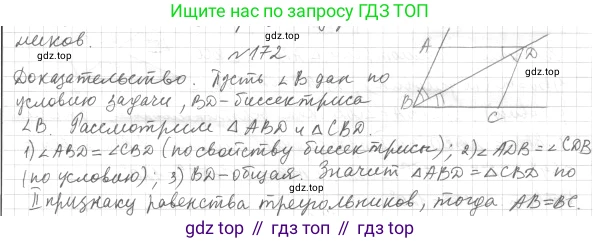 Ищите нас по запросу ГДЗ ТОП
ников.
№172
Доказательство. Пусть ∠B дан по
условию задачи, BD-биссектриса
∠B. Рассмотрим △ABD и △CBD.
1) ∠ABD = ∠CBD (по свойству биссектрисы); 2) ∠ADB = ∠CDB
(по условию); 3) BD-общая. Значит △ABD = △CBD по
II признаку равенства треугольников, тогда AB=BC.
A
D
B
C
gdz.top // gdz.top // gdz.top // gdz.top